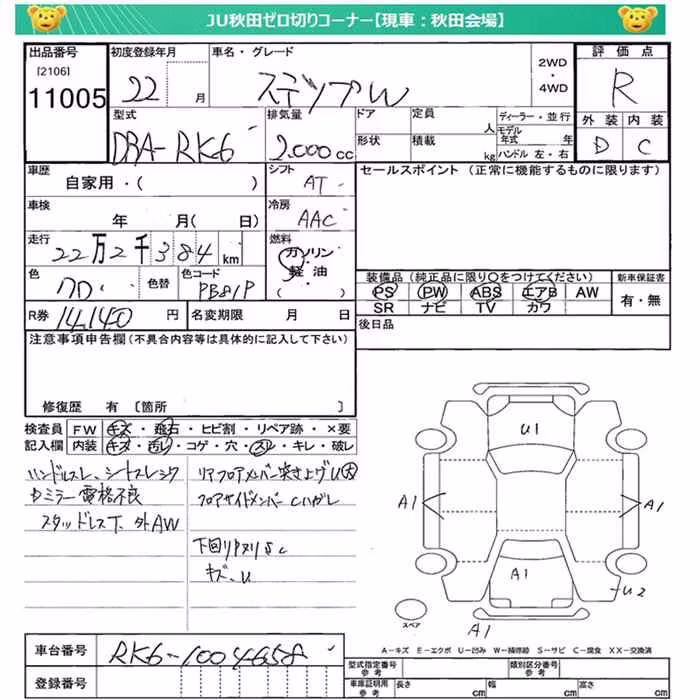 JU秋田ゼロ切りコーナー【現車：秋田会場】
出品番号 初度登録年月 車名・グレード 2WD ・ 4WD 評価点
[2106] 11005 22 月 ステップW R
型式 排気量 ドア 定員 人 ディーラー・並行 外装 内装
DBA-RK6 2.000cc 形状 積載 kg モデル年式 年 ハンドル 左・右 D C
車歴 シフト セールスポイント (正常に機能するものに限ります)
自家用・( ) AT
車検 年 月( 日) 冷房 AAC
走行 22万2千384km 燃料 ガソリン 軽油 ( )
色 色替 色コード PB81P
装備品 (純正品に限り○をつけてください) 新車保証書
PS PW ABS エアB AW 有・無
SR ナビ TV カワ
R券 14,140円 名変期限 月 日 後日品
注意事項申告欄(不具合内容等は具体的に記入して下さい)
修復歴 有 [箇所 ]
検査員 FW キズ・飛石・ヒビ割・リペア跡・×要
記入欄 内装 キズ・汚レ・コゲ・穴・スレ・キレ・破レ
ハンドルスレ、シートスレシワ
ミラー電格不良
スタッドレスT、外AW
リアフロアメンバー突き上げU大
フロアサイドメンバーCハガレ
下回り
キズ、U
U1
A1
A1
A1
U2
A1
スペア
A-キズ E-エクボ U-凹み W-補修跡 S-サビ C-腐食 XX-交換済
車台番号 RK6-1004658
登録番号
型式指定番号 参考 類別区分番号 参考
車庫証明用 参考 長さ cm 幅 cm 高さ cm